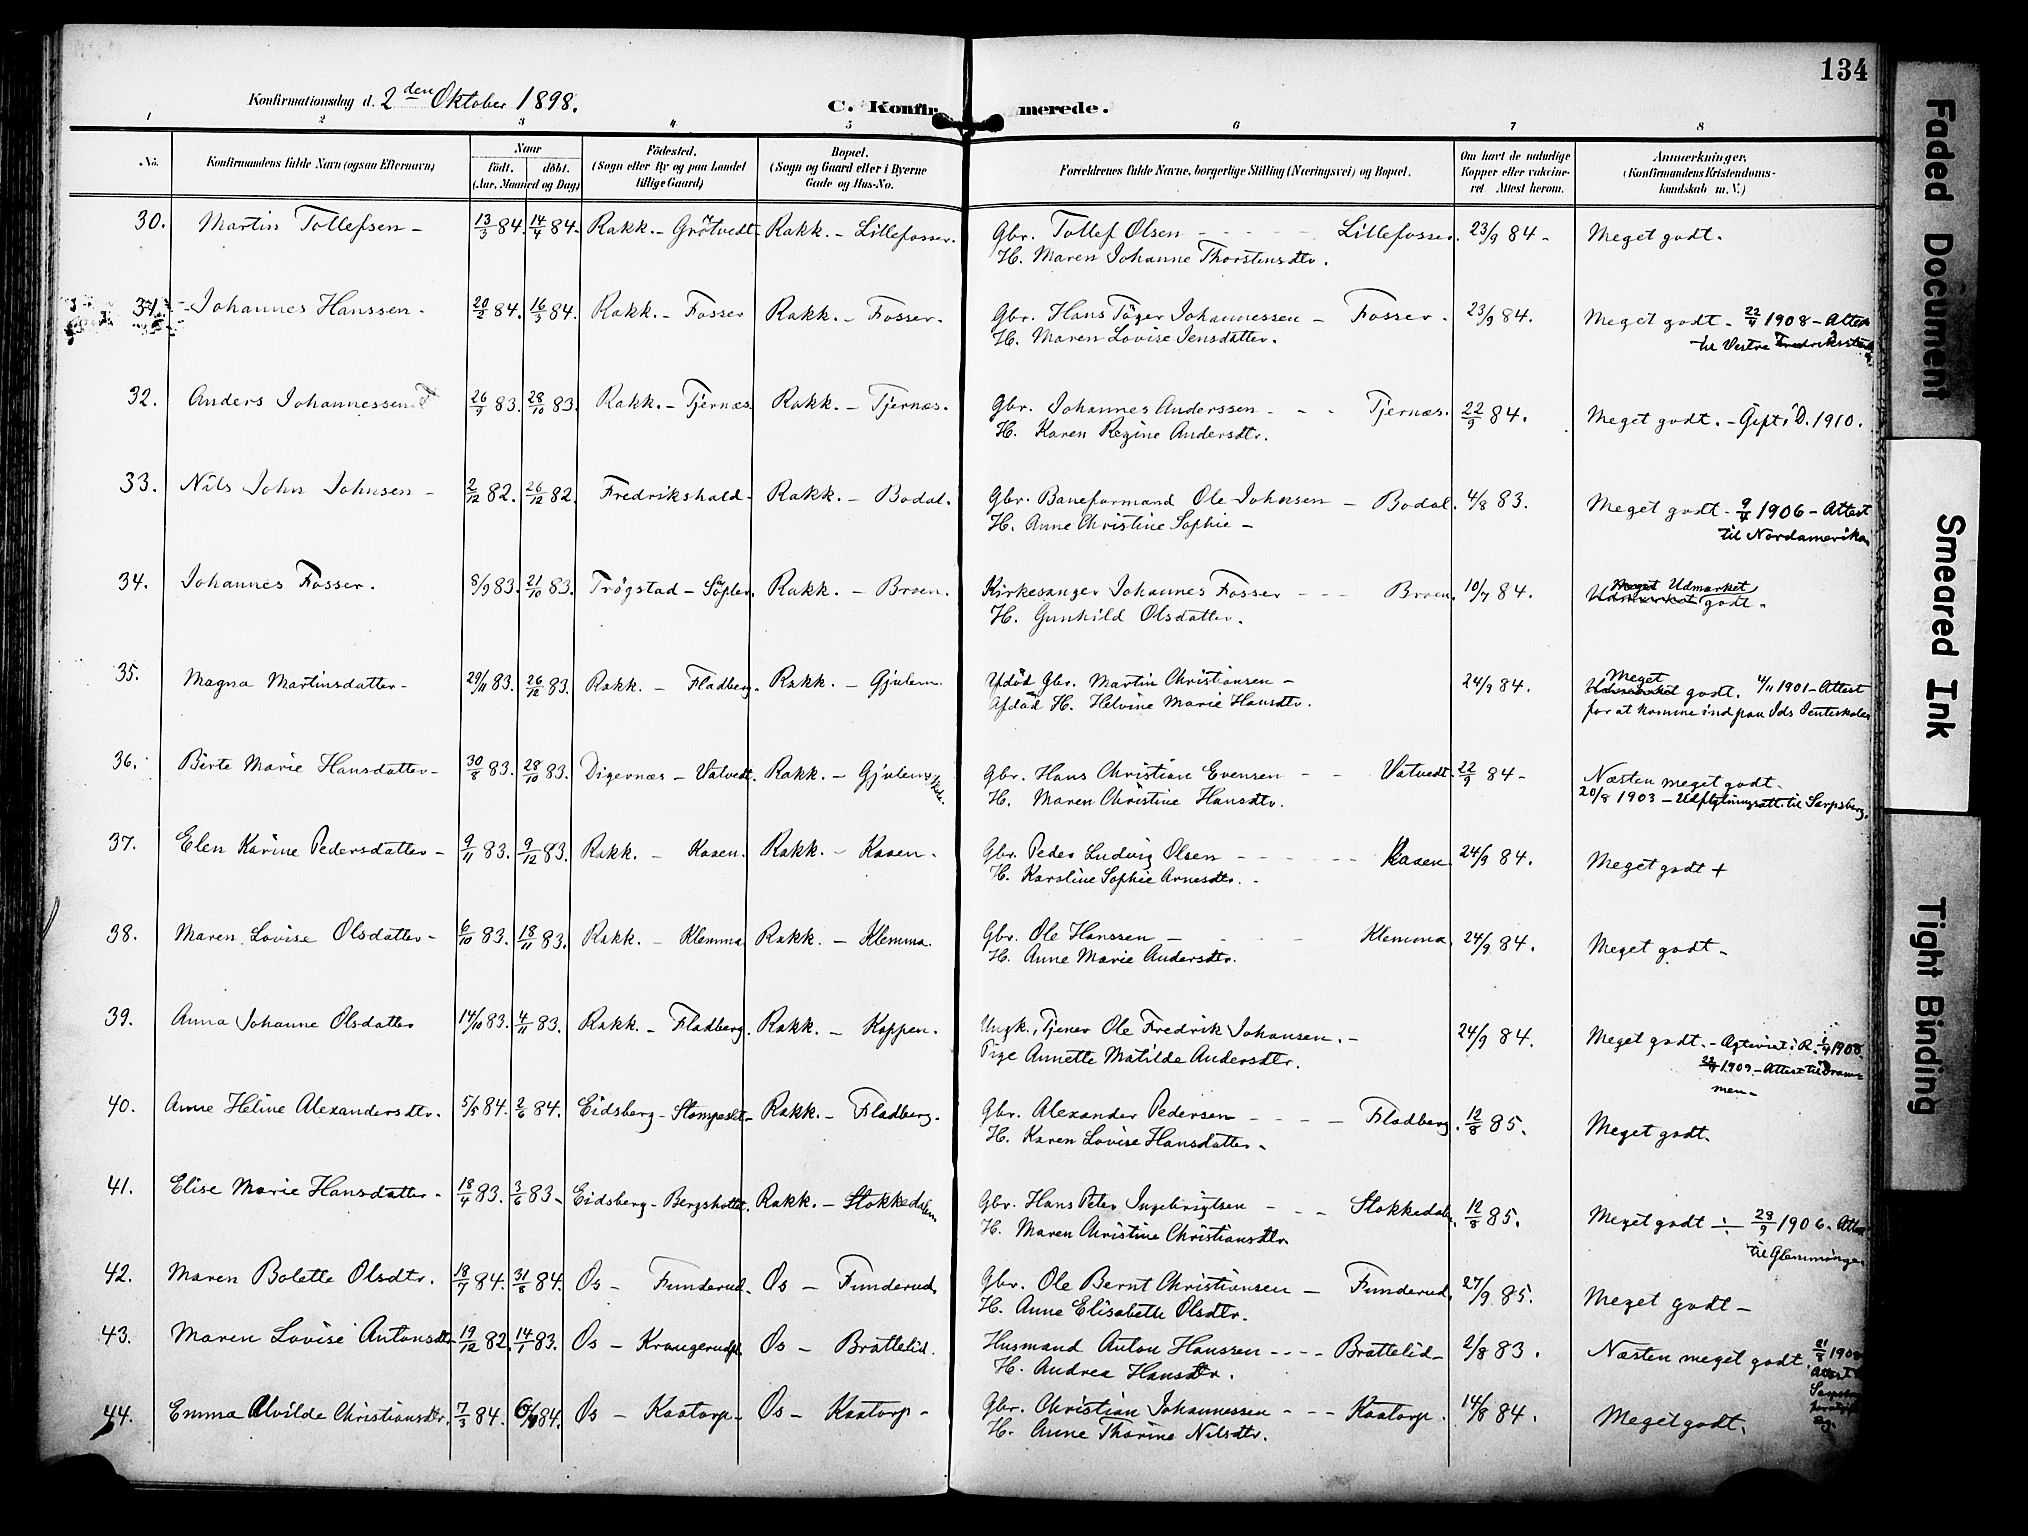 134
Konfirmationsdag d. 2den Oktober 1898.
C. Konfirmerede.
1 2 3 4 5 6 7 8
No. Konfirmandens fulde Navn (ogsaa Efternavn) Naar født. døbt. (Aar, Maaned og Dag) Fødested. (Sogn eller By og paa Landet tillige Gaard) Bopæl. (Sogn og Gaard eller i Byerne Gade og Hus-No. Forældrenes fulde Navne, borgerlige Stilling (Næringsvei) og Bopæl. Om havt de naturlige Kopper eller vakcineret Attest herom. Anmærkninger. (Konfirmandens Kristendomskundskab m. V.)
30. Martin Tollefsen - 13/3 84. 14/4 84. Rakk. - Grøtvedt Rakk. - Lillefosser. Gbr. Tollef Olsen - Lillefosser. 23/9 84 - Meget godt.
H. Maren Johanne Thorstensdtr.
31. Johannes Hanssen. 20/2 84. 16/3 84. Rakk. - Fosser Rakk. - Fosser. Gbr. Hans Tøger Johannessen - Fosser. 23/9 84. Meget godt. 22/4 1908 - Attest
H. Maren Lovise Jensdatter. til Vestre Fredriksstad
32. Anders Johannessen 26/9 83. 28/10 83. Rakk. - Tjernæs Rakk. - Tjernæs. Gbr. Johannes Anderssen - Tjernæs. 22/9 84. Meget godt. - Gift i D. 1910.
H. Karen Regine Andersdtr.
33. Nils John Johnsen - 2/12 82. 26/12 82. Fredrikshald - Rakk. - Bodal. Gbr. Baneformand Ole Johnsen - Bodal. 4/8 83. Meget godt - 9/4 1906 - Attest
H. Anne Christine Sophie - til Nordamerika
34. Johannes Fosser. 8/9 83. 21/10 83. Trøgstad - Rakk. - Broen. Kirkesanger Johannes Fosser - Broen. 10/7 84. Meget Udmærket
H. Gunhild Olsdatter. Udmærket godt.
35. Magna Martinsdatter - 29/11 83. 26/12 83. Rakk. - Fladberg. Rakk. - Gjulem. Afdød Gbr. Martin Christiansen - 24/9 84. Meget
Udmærket godt. 4/11 1901 - Attest
Afdød H. Helvine Marie Hansdtr. for at komme ind paa Ids Jenteskole
36. Birte Marie Hansdatter - 30/8 83. 28/10 83. Digernæs - Vatvedt. Rakk. - Gjulem Gbr. Hans Christian Evensen - Vatvedt. 22/9 84 - Næsten meget godt.
H. Maren Christine Hansdtr. 20/8 1903 - Udflytningsatt. til Sarpsborg.
37. Elen Karine Pedersdatter - 9/11 83. 9/12 83. Rakk. - Kasen. Rakk. - Kasen. Gbr. Peder Ludvig Olsen - Kasen. 24/9 84. Meget godt +
H. Karoline Sophie Arnesdtr.
38. Maren Lovise Olsdatter - 6/10 83. 18/11 83. Rakk. - Klemma. Rakk. - Klemma. Gbr. Ole Hanssen - Klemma. 24/9 84. Meget godt -
H. Anne Marie Andersdtr.
39. Anna Johanne Olsdatter 14/10 83. 4/11 83. Rakk. - Fladberg. Rakk. - Koppen. Ungk., Tjener Ole Fredrik Johansen. - 24/9 84. Meget godt. - Agteviet i R. 1908.
Pige Annette Matilde Andersdtr. 1909 - Attest til Drammen -
40. Anne Heline Alexandersdtr. 5/5 84. 2/6 84. Eidsberg - Rakk. - Fladberg. Gbr. Alexander Pedersen - Fladberg. 12/8 85. Meget godt.
H. Karen Lovise Hansdatter -
41. Elise Marie Hansdatter - 18/4 83. 3/6 83 - Eidsberg - Rakk. - Stokkedalen Gbr. Hans Peter Ingebrigtsen - Stokkedalen. 12/8 85. Meget godt ÷ 28/9 1906. Attest
H. Maren Christine Christiansdtr. til Glemminge
42. Maren Bolette Olsdtr. 18/7 84. 31/8 84. Os - Funderud. Os - Funderud Gbr. Ole Bernt Christiansen - Funderud. 27/9 85. Meget godt -
H. Anne Elisabeth Olsdtr.
43. Maren Lovise Antonsdtr. 19/12 82. 14/1 83. Os - Os - Brattelid. Husmand Anton Hanssen - Brattelid - 2/8 83. Næsten meget godt. 21/8
H. Andrea Hansdtr. Attest
44. Emma Alvilde Christiansdtr. 7/3 84. 84. Os - Kaatorp - Os - Kaatorp - Gbr. Christian Johannessen - Kaatorp. 14/8 84. Meget godt.
H. Anne Thorine Nilsdtr.
Faded Document
Smeared Ink
Tight Binding